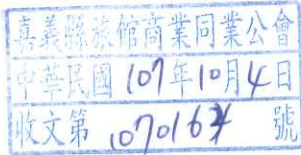 嘉義縣旅館商業同業公會
中華民國107年10月4日
收文第1070163號